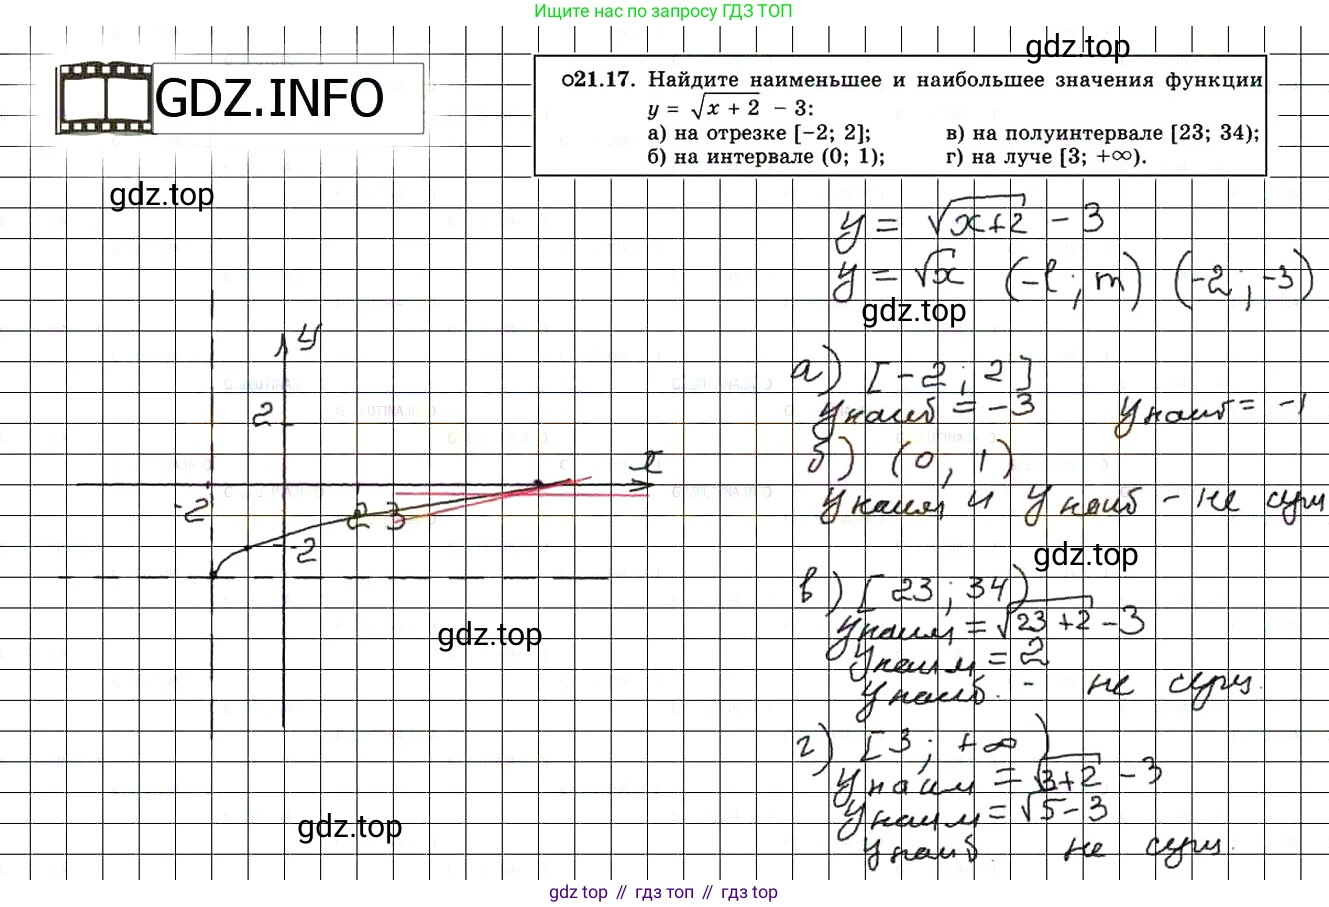 Ищите нас по запросу ГДЗ ТОП
gdz.top
GDZ.INFO
о21.17. Найдите наименьшее и наибольшее значения функции
y = √x + 2 − 3:
а) на отрезке [−2; 2];
в) на полуинтервале [23; 34);
б) на интервале (0; 1);
г) на луче [3; +∞).
gdz.top
y = √x+2 − 3
y = √x (−l ; m) (−2 ; −3)
gdz.top
y
2
x
−2
2 3
−2
а) [−2 ; 2]
yнаиб = −3 yнаиб = −1
б) (0 , 1)
yнаим и yнаиб − не сущ
gdz.top
в) [23 ; 34)
yнаим = √23+2 − 3
yнаим = 2
yнаиб. − не сущ.
gdz.top
г) [3 ; +∞)
yнаим = √3+2 − 3
yнаим = √5−3
yнаиб. не сущ.
gdz.top
gdz top // гдз топ // gdz top